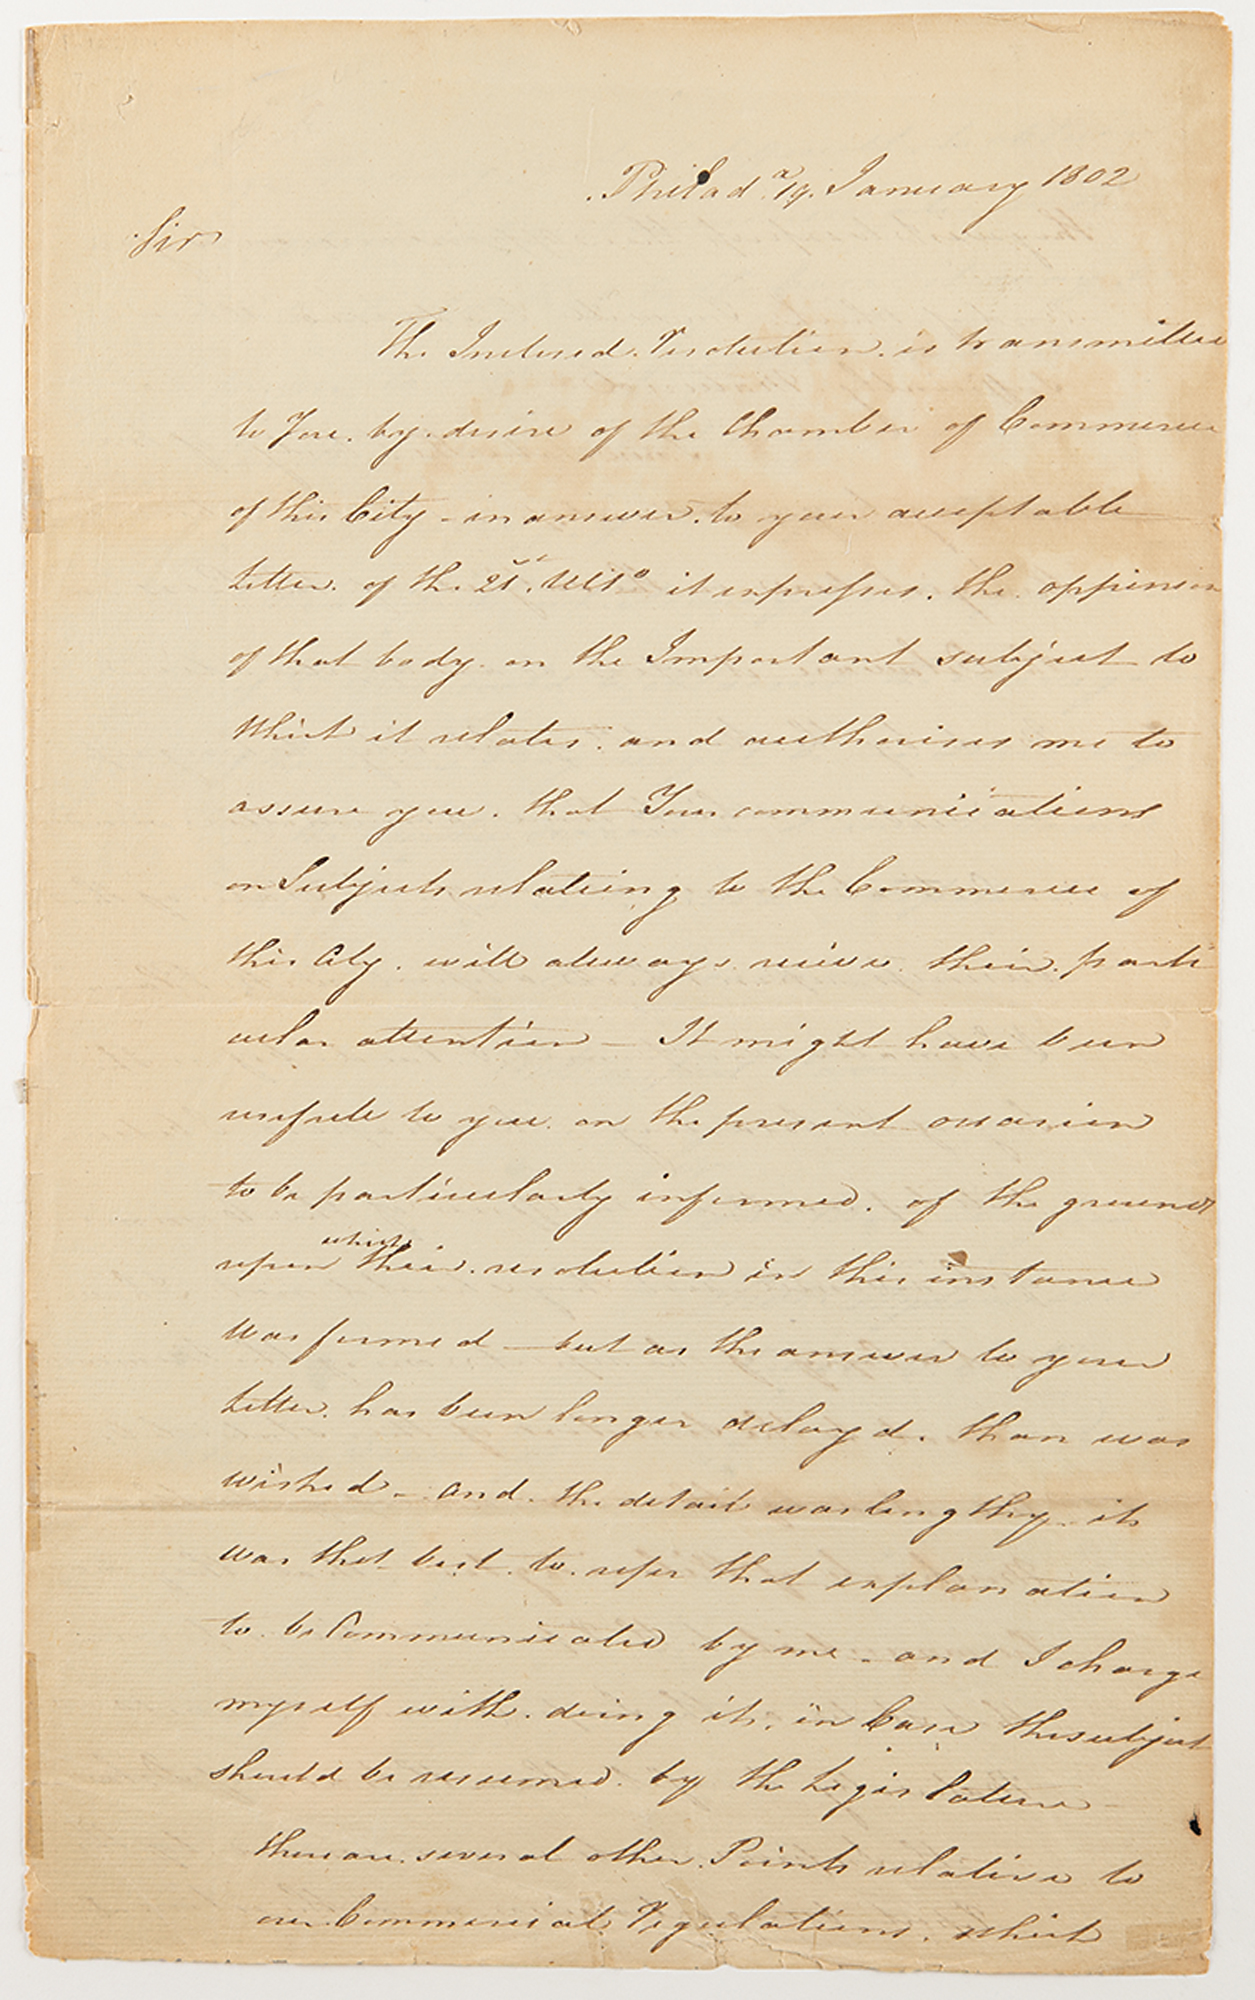 Philad.ª 19. January 1802
Sir
The Inclosed. Resolution. is transmitted
to You. by. desire of the Chamber of Commerce
of this City - in answer. to your acceptable
letter. of the 21st. Ulto it expresses. the oppinion
of that body. on the Important subject to
which it relates. and authorises me to
assure you. that Your communications
on Subjects relating to the Commerce of
this City. will always receive. their. parti
cular attention - It might have been
usefull to you. on the present occasion
to be particularly informed. of the ground
upon which their. resolution in this instance
was formed - but as the answer to your
letter. has been longer delayd. than was
wished - and. the detail was lengthy - it
was thot best. to. refer that explanation
to. be Communicated by me. and I charge
myself with. doing it. in Case the subject
should be resumed. by the Legislature
there are. several other. Points relative to
our Commercial Regulations. which